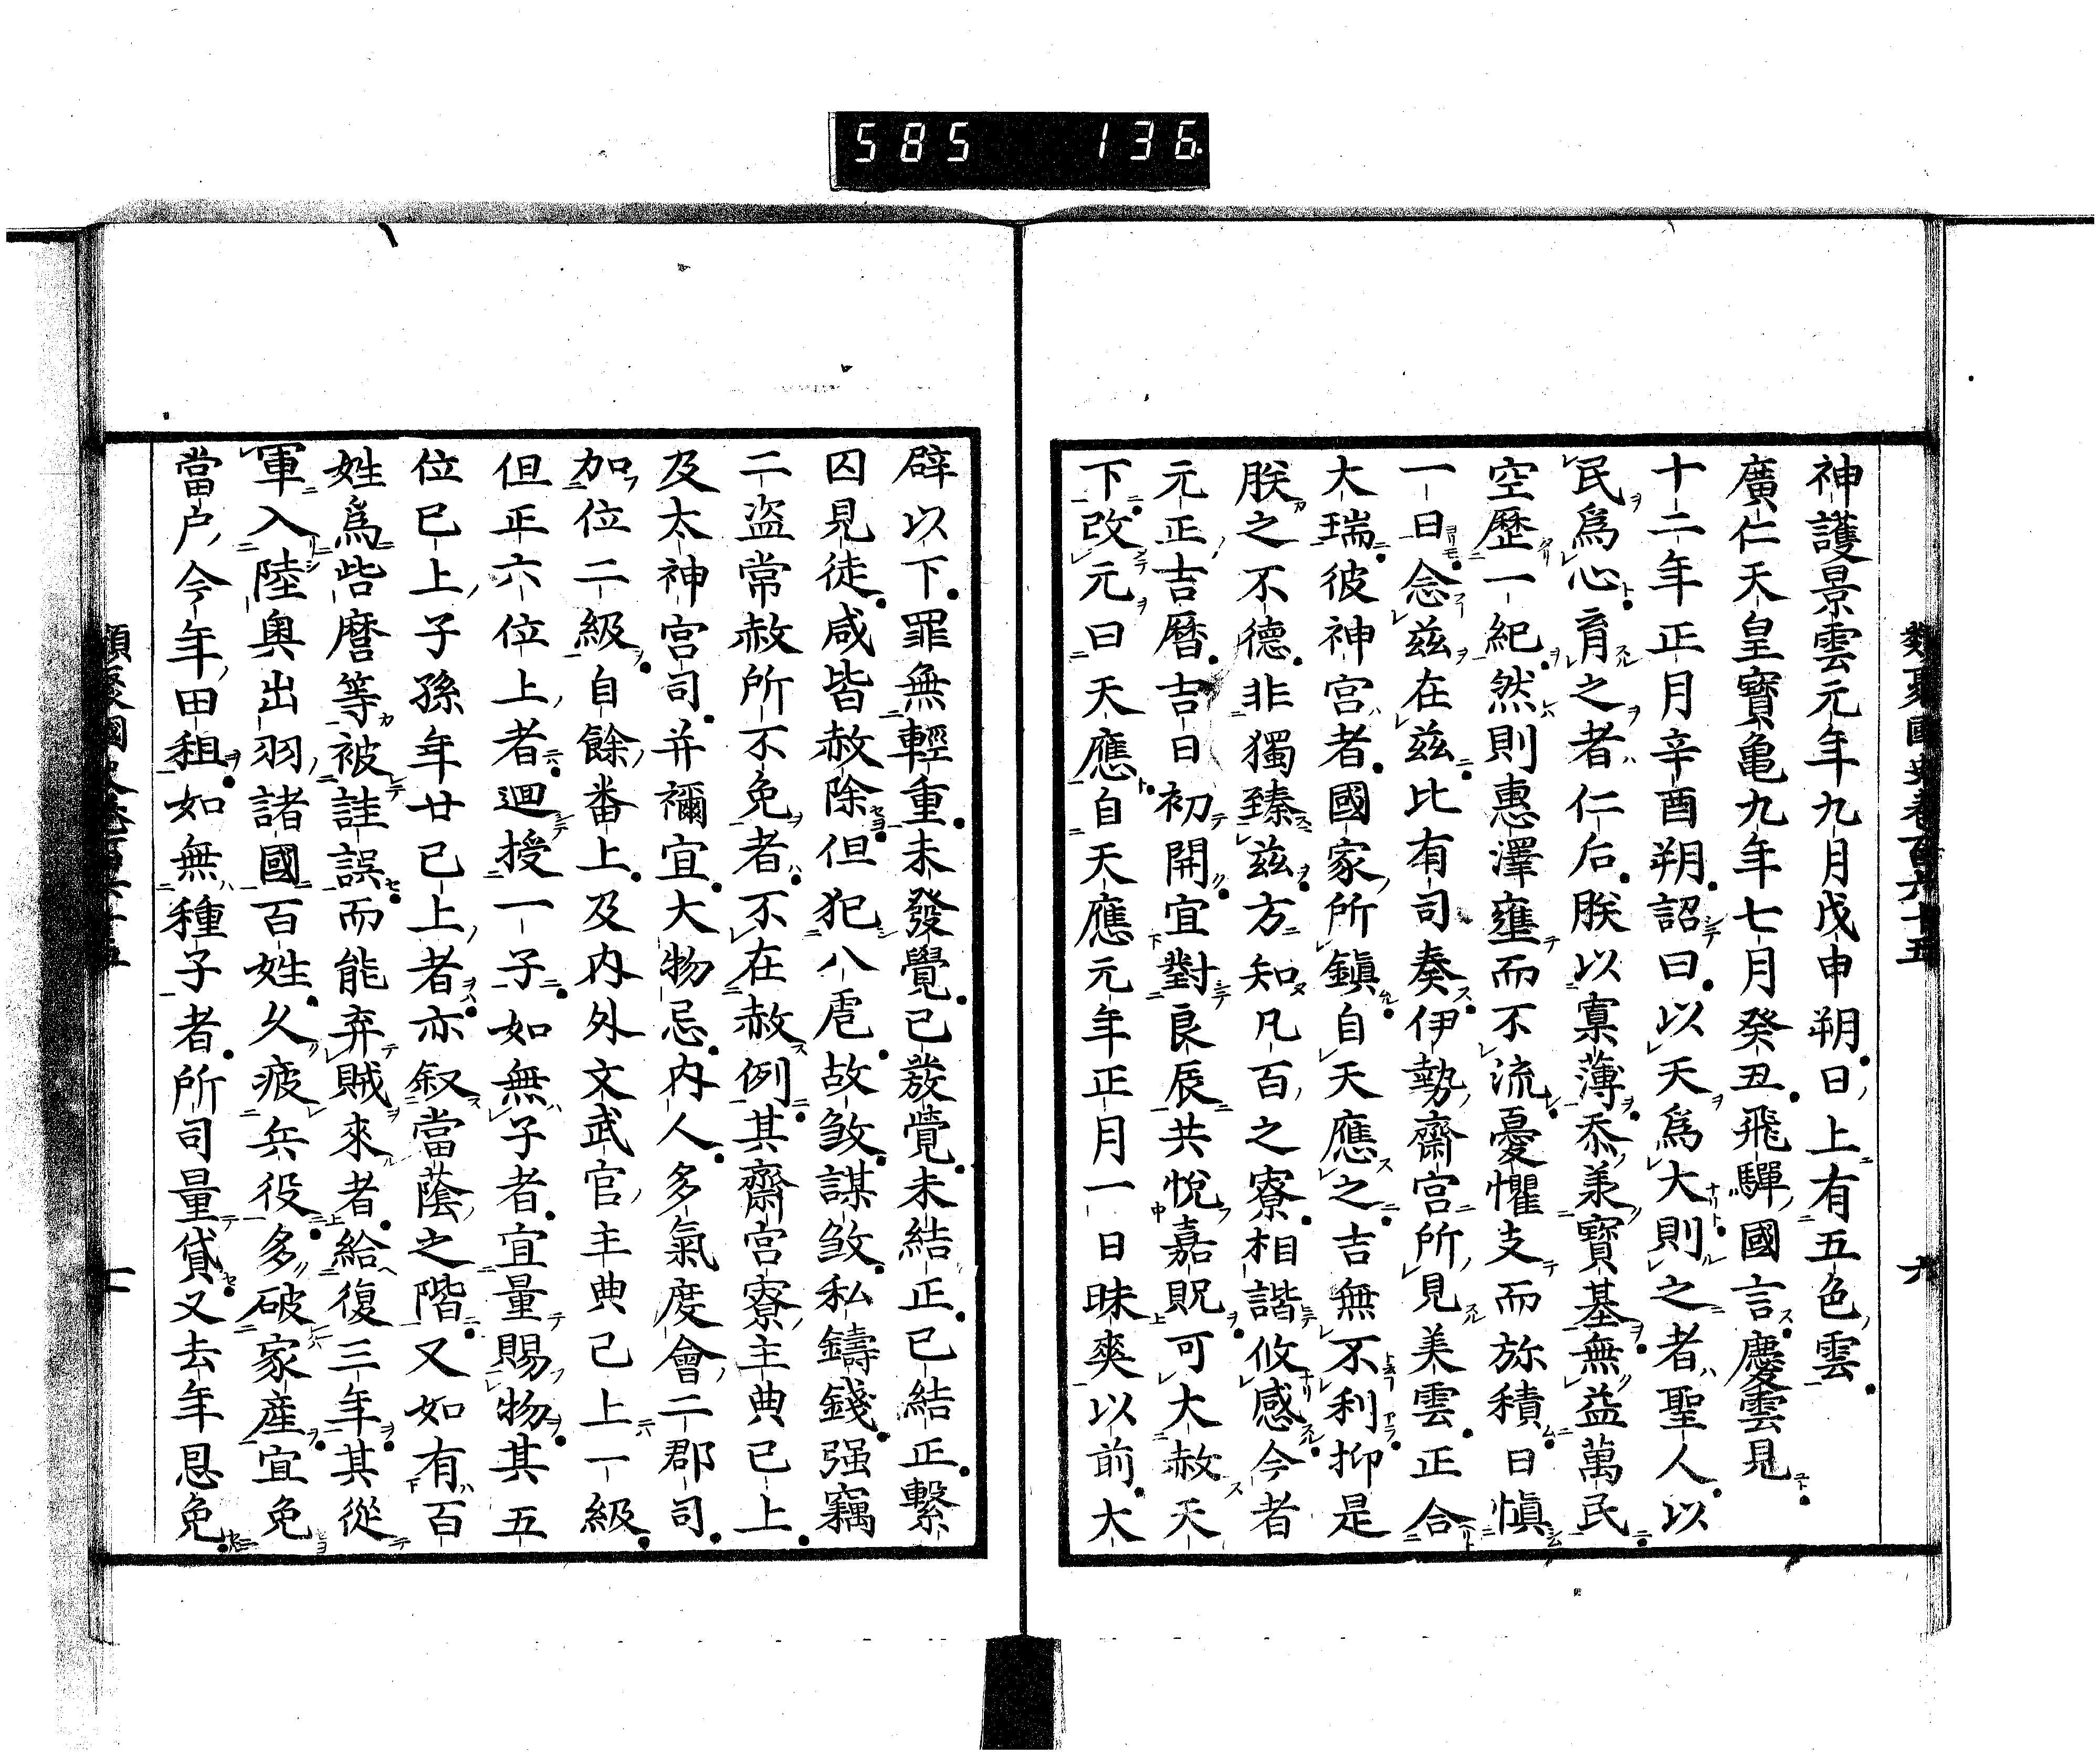 585 136
類聚國史卷百六十五 六
神護景雲元年九月戊申朔日上有五色雲
廣仁天皇寶亀九年七月癸丑飛驒國言慶雲見
十二年正月辛酉朔詔曰以天爲大則之者聖人以
民爲心育之者仁后朕以寡薄忝承寶基無益萬民
空歷一紀然則惠澤壅而不流憂懼交而弥積日愼
一日念茲在茲比有司奏伊勢齋宮所見美雲正合
大瑞彼神宮者國家所鎭自天應之吉無不利抑是
朕之不德非獨臻茲方知凡百之寮相諧攸感今者
元正吉曆吉日初開宜對良辰共悅嘉貺可大赦天
下改元曰天應自天應元年正月一日昧爽以前大
辟以下罪無輕重未發覺已發覺未結正已結正繫
囚見徒咸皆赦除但犯八虐故殺謀殺私鑄錢强竊
二盜常赦所不免者不在赦例其齋宮寮主典已上
及太神宮司并禰宜大物忌内人多氣度會二郡司
加位二級自餘番上及内外文武官主典已上一級
但正六位上者廻授一子如無子者宜量賜物其五
位已上子孫年廿已上者亦叙當蔭之階又如有百
姓爲呰麿等被詿誤而能弃賊來者給復三年其從
軍入陸奥出羽諸國百姓久疲兵役多破家産宜免
當户今年田租如無種子者所司量貸又去年恩免
類聚國史卷百六十五 七